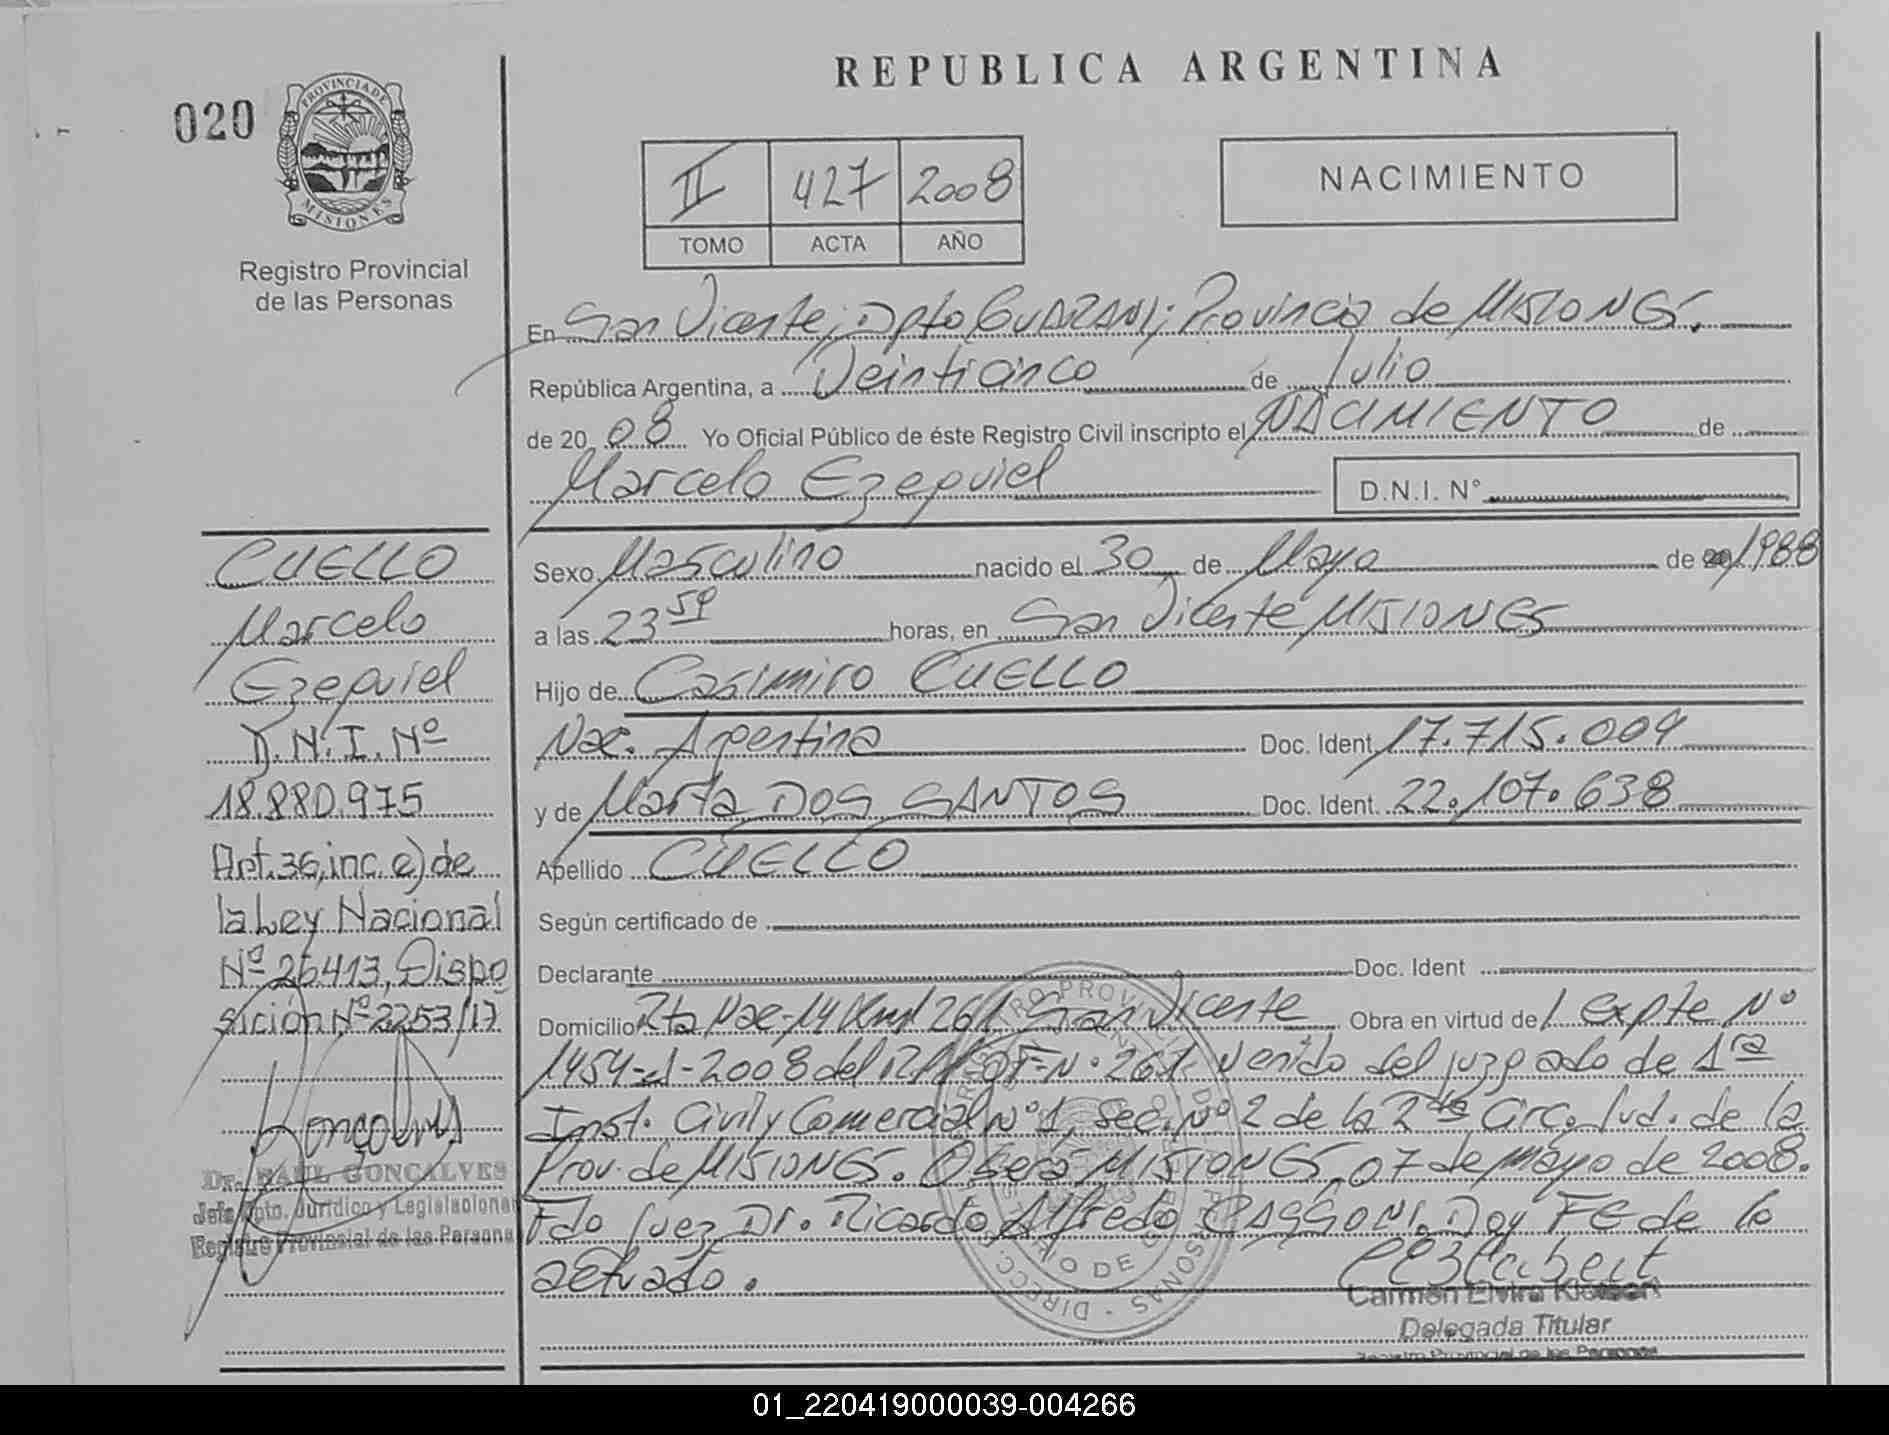 REPUBLICA ARGENTINA
020
PROVINCIA DE
MISIONES
Registro Provincial
de las Personas
II 427 2008
TOMO ACTA AÑO
NACIMIENTO
En San Vicente; Dpto GUARANI; Provincia de MISIONES.
República Argentina, a Veinticinco de Julio
de 20 08 Yo Oficial Público de éste Registro Civil inscripto el NACIMIENTO de
Marcelo Ezequiel D.N.I. N°
Sexo Masculino nacido el 30 de Mayo de 1988
a las 23 59 horas, en San Vicente MISIONES
Hijo de Casimiro CUELLO
Nac. Argentina Doc. Ident. 17.715.009
y de Marta DOS SANTOS Doc. Ident. 22.107.638
Apellido CUELLO
Según certificado de
Declarante Doc. Ident
Domicilio Rta Nac-14 Km 261 San Vicente Obra en virtud de Expte Nº
1454- -2008 del OF-N.261. Venido del juzgado de 1ra
Inst. Civil y Comercial Nº1, Sec. Nº 2 de la 2da Circ. Jud. de la
Prov. de MISIONES. Oberá MISIONES, 07 de mayo de 2008.
Fdo Juez Dr. Ricardo Alfredo CASSONI. Doy FE de lo
actuado.
Carmen Elvira
Delegada Titular
Registro Provincial de las Personas
CUELLO
Marcelo
Ezequiel
D.N.I. Nº
18.880.975
Art. 36, inc. e) de
la Ley Nacional
Nº 26413, Dispo
sición Nº 2253/17
Dr. RAUL GONCALVES
Jefe Dpto. Jurídico y Legislacional
Registro Provincial de las Persona
01_220419000039-004266